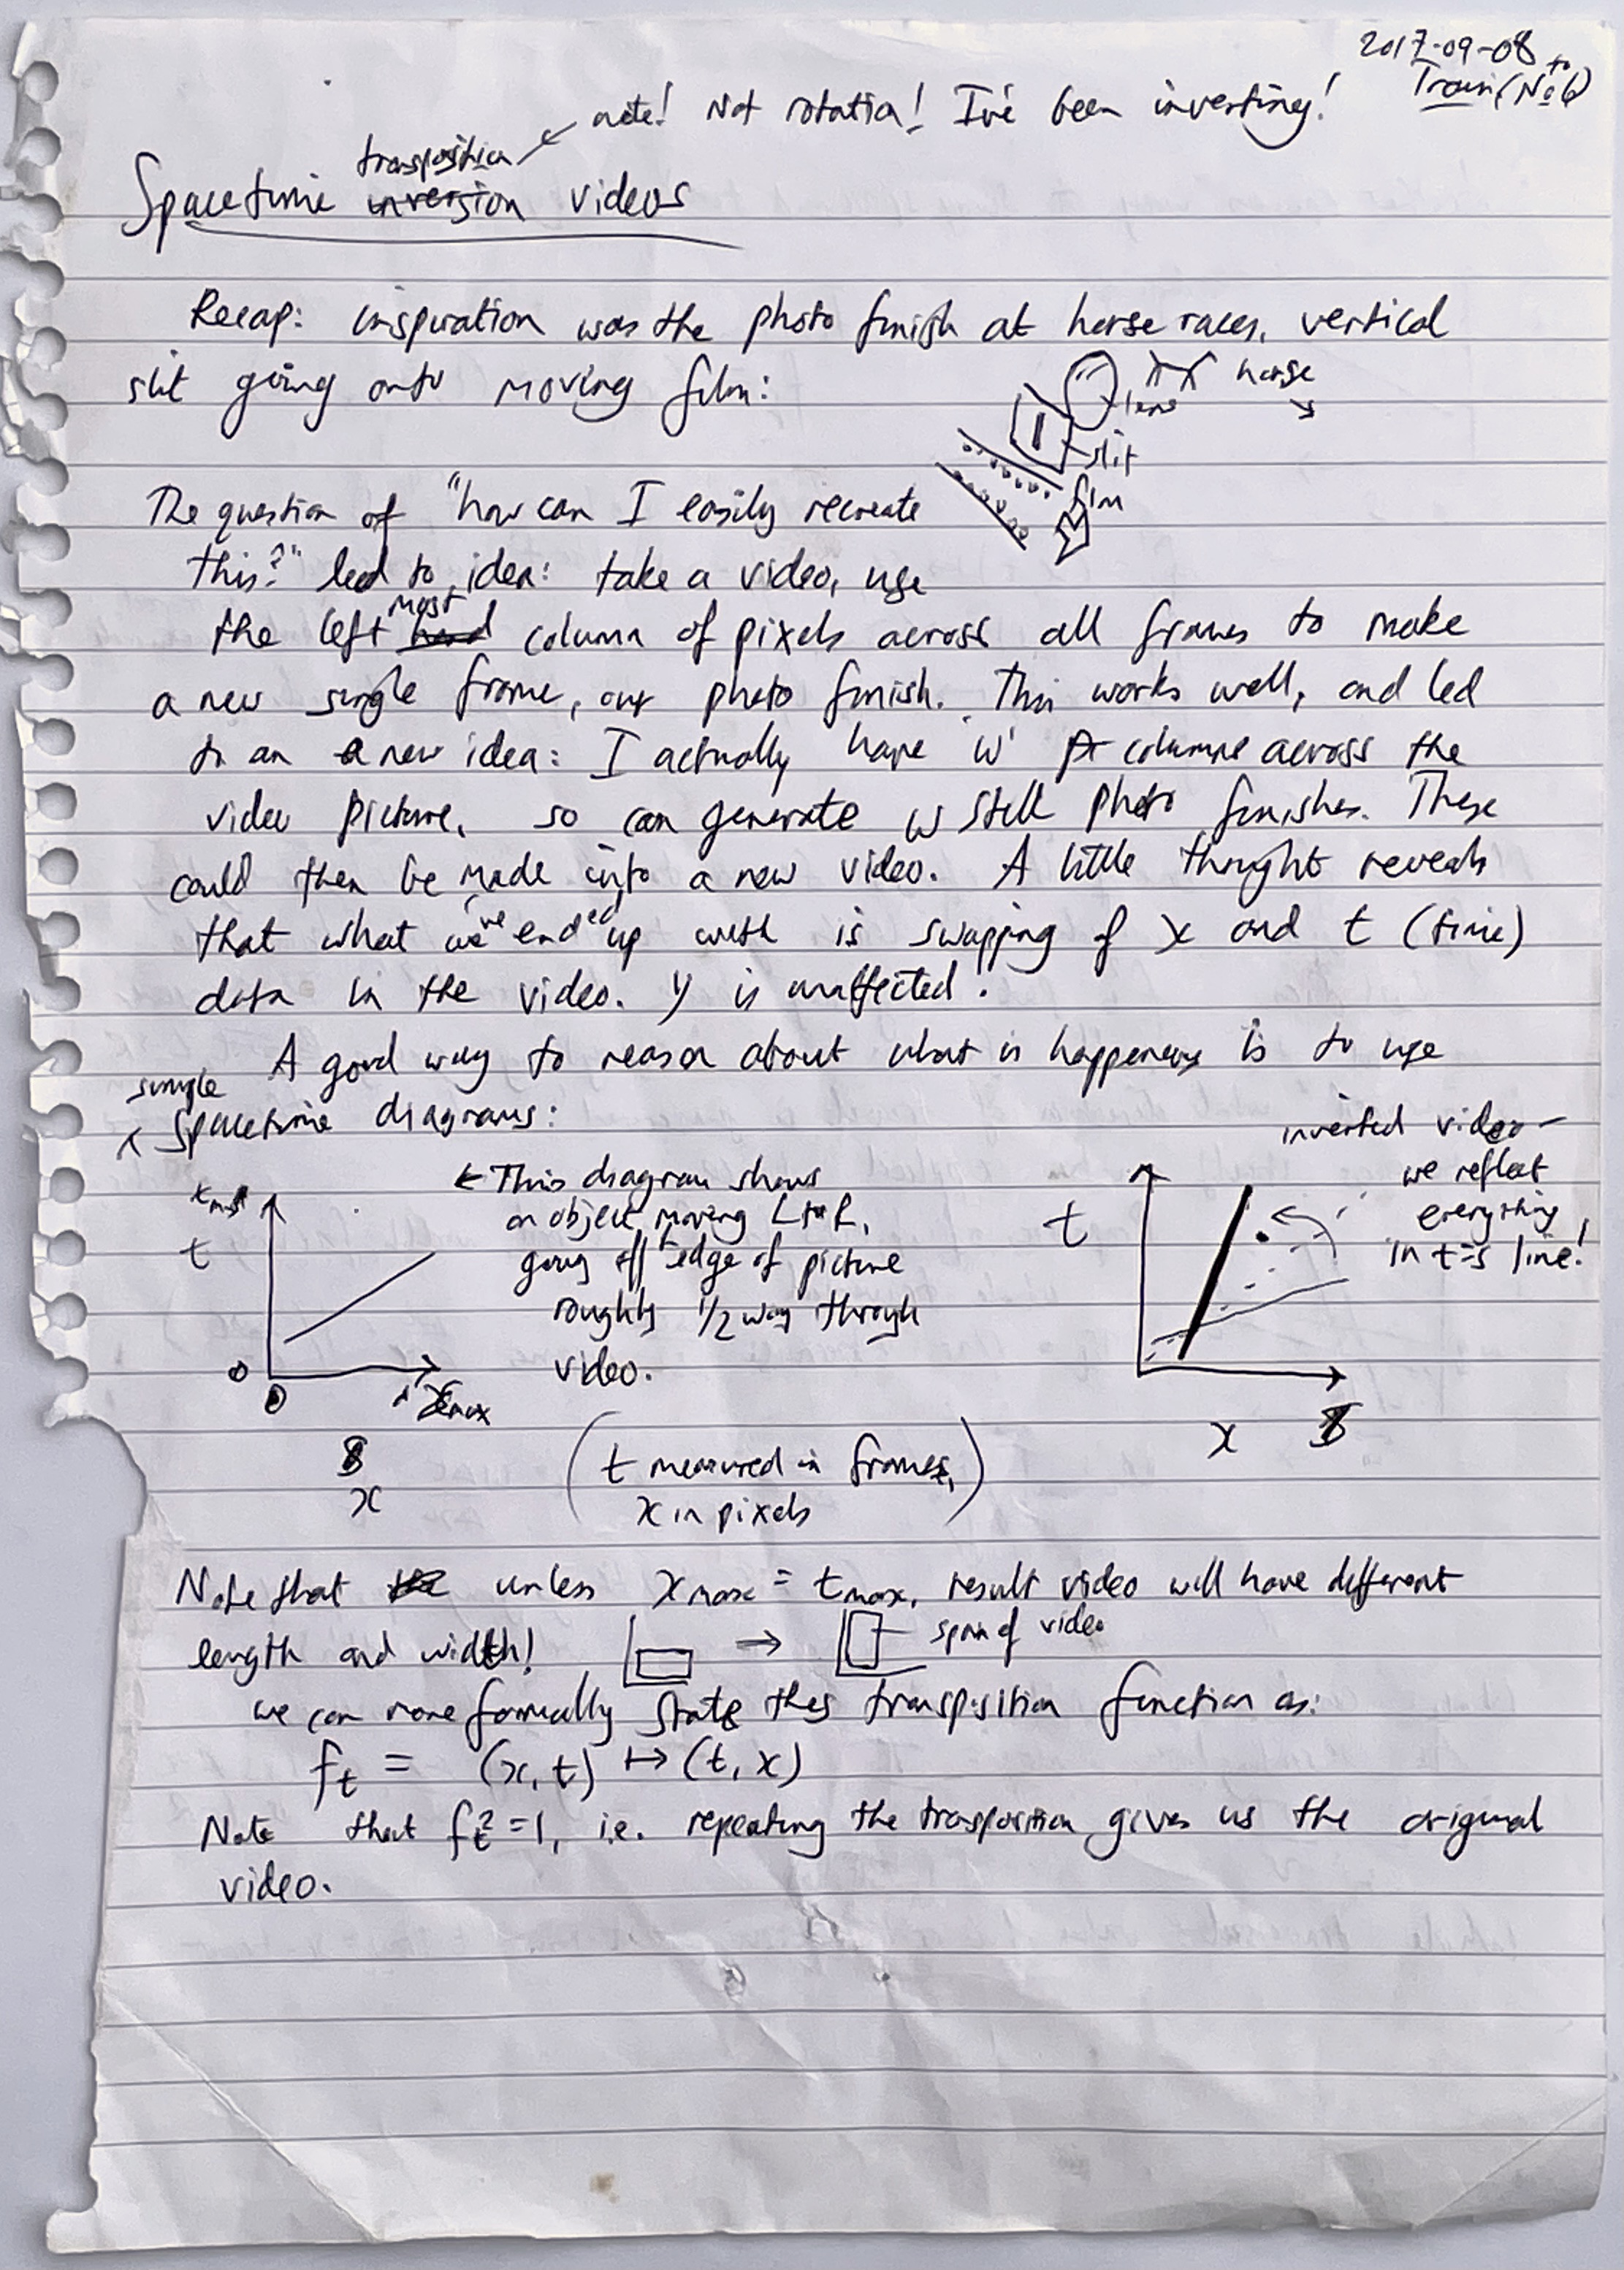 2017-09-08
Train (No 6) to
note! Not rotation! I've been inverting!
transposition
Spacetime inversion videos
Recap: inspiration was the photo finish at horse races, vertical
slit going onto moving film:
horse
lens
slit
film
The question of "how can I easily recreate
this?" led to idea: take a video, use
most
the left hand column of pixels across all frames to make
a new single frame, our photo finish. This works well, and led
to an a new idea: I actually have 'w' columns across the
video picture, so can generate w still photo finishes. These
could then be made into a new video. A little thought reveals
that what we've ended up with is swapping of x and t (time)
data in the video. y is unaffected.
A good way to reason about what is happening is to use
simple
spacetime diagrams:
← This diagram shows
an object moving L to R,
going off edge of picture
roughly 1/2 way through
video.
t
0
0
xmax
x
inverted video –
we reflect
everything
in t=s line!
t
x
(t measured in frames,
x in pixels)
Note that unless xmax = tmax, result video will have different
length and width! ⇒ span of video
we can more formally state this transposition function as:
ft = (x, t) ↦ (t, x)
Note that ft² = 1, i.e. repeating the transposition gives us the original
video.